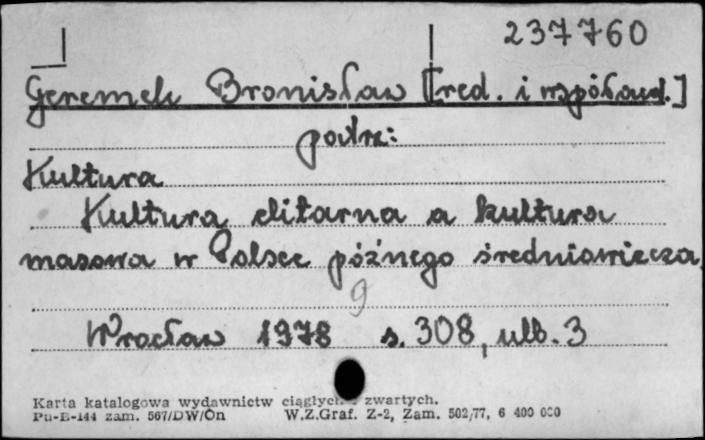 237760
Geremek Bronisław [red. i współaut.]
patrz:
Kultura
Kultura elitarna a kultura
masowa w Polsce późnego średniowiecza
9
Wrocław 1978 s. 308, ulb. 3
Karta katalogowa wydawnictw ciągłych i zwartych.
Pu-B-144 zam. 567/DW/On W.Z.Graf. Z-2, Zam. 502/77, 6 400 000